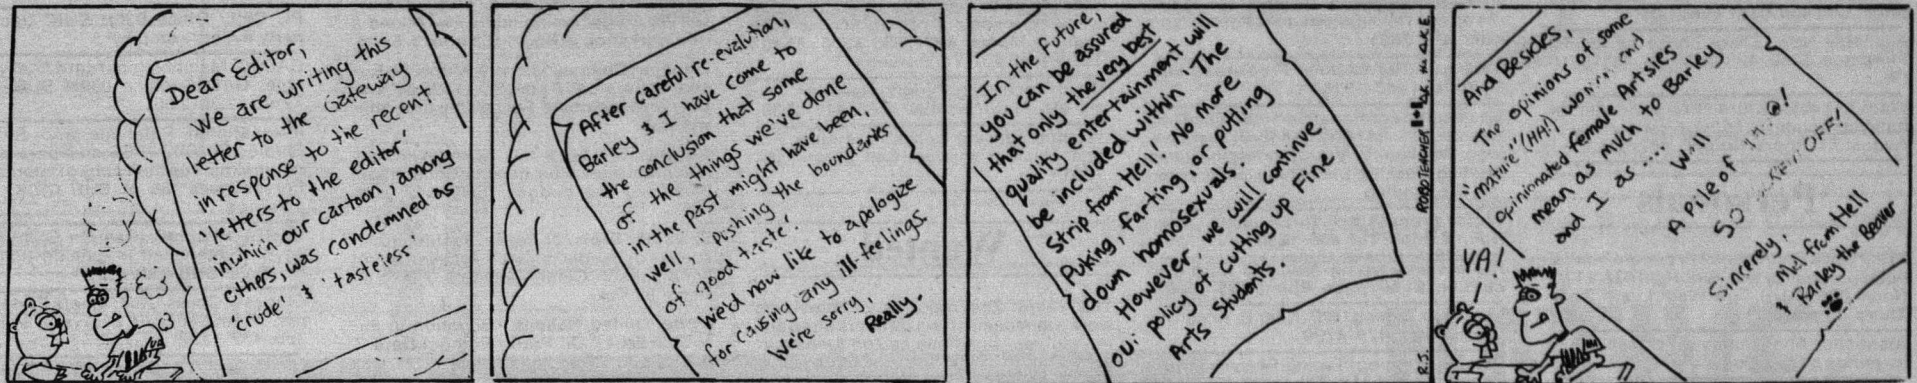 Dear Editor,
We are writing this
letter to the Gateway
in response to the recent
'letters to the editor'
in which our cartoon, among
others, was condemned as
'crude' & 'tasteless'
After careful re-evalution,
Barley & I have come to
the conclusion that some
of the things we've done
in the past might have been,
well, 'pushing the boundaries
of good taste'.
We'd now like to apologize
for causing any ill-feelings.
We're sorry,
Really.
In the Future,
you can be assured
that only the very best
quality entertainment will
be included within 'The
Strip from Hell'! No more
Puking, farting, or putting
down homosexuals.
However, we will continue
our policy of cutting up Fine
Arts Students.
R.S.
And Besides,
The opinions of some
"mature" (HA!) and
opinionated female Artsies
mean as much to Barley
and I as .... Well
A Pile of
SO OFF!
Sincerely,
from Hell
& Barley the Beaver
YA!